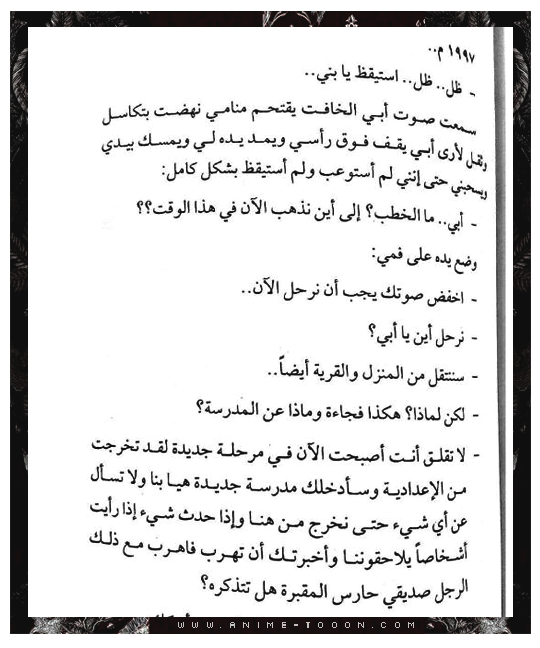 ١٩٩٧ م..
- ظل.. ظل.. استيقظ يا بني..
سمعت صوت أبي الخافت يقتحم منامي نهضت بتكاسل
وثقل لأرى أبي يقف فوق رأسي ويمد يده لي ويمسك بيدي
ويسحبني حتى إنني لم أستوعب ولم أستيقظ بشكل كامل:
- أبي.. ما الخطب؟ إلى أين نذهب الآن في هذا الوقت؟؟
وضع يده على فمي:
- اخفض صوتك يجب أن نرحل الآن..
- نرحل أين يا أبي؟
- سننتقل من المنزل والقرية أيضاً..
- لكن لماذا؟ هكذا فجاءة وماذا عن المدرسة؟
- لا تقلق أنت أصبحت الآن في مرحلة جديدة لقد تخرجت
من الإعدادية وسأدخلك مدرسة جديدة هيا بنا ولا تسأل
عن أي شيء حتى نخرج من هنا وإذا حدث شيء إذا رأيت
أشخاصاً يلاحقوننا وأخبرتك أن تهرب فاهرب مع ذلك
الرجل صديقي حارس المقبرة هل تتذكره؟
WWW.ANIME-TOOON.COM